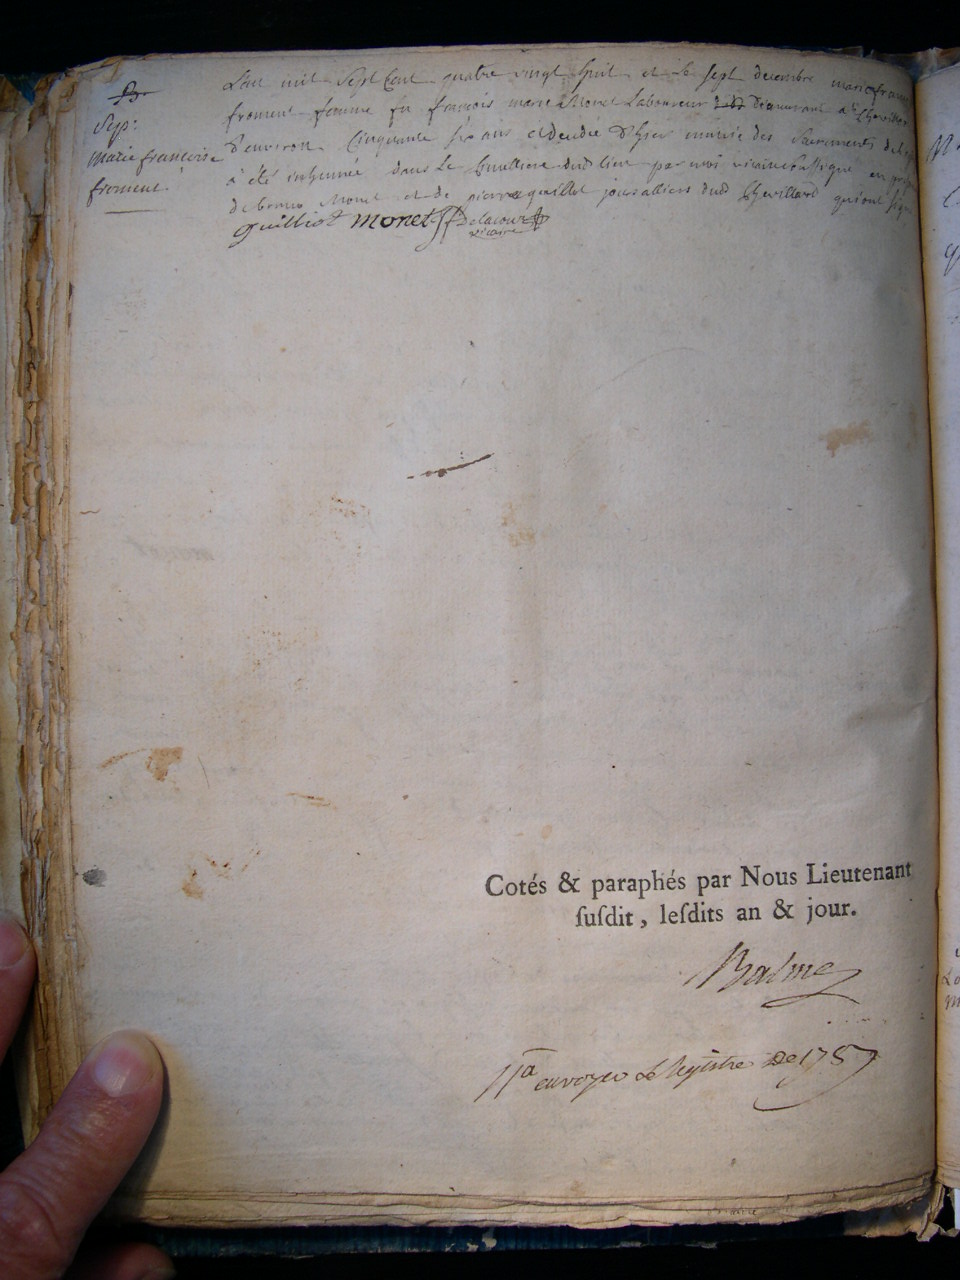 Sep:
Marie françoise
froment
L'an mil Sept Cent quatre vingt huit et le sept decembre marie fran
froment femme feu françois marie Monet Laboureur demeurant a Chevillard
d'environ Cinquante six ans decedée d'hier munie des Sacrements de
a été inhumée dans Le Cimetiere dud lieu par moi vicaire Soussigné en
de benoit Monet et de pierre guillot journalliers dud Chevillard qui ont signé
guilliot monet delacour
vicaire
Cotés & paraphés par Nous Lieutenant
ſuſdit, leſdits an & jour.
Balme
envoyer le Registre De 1787